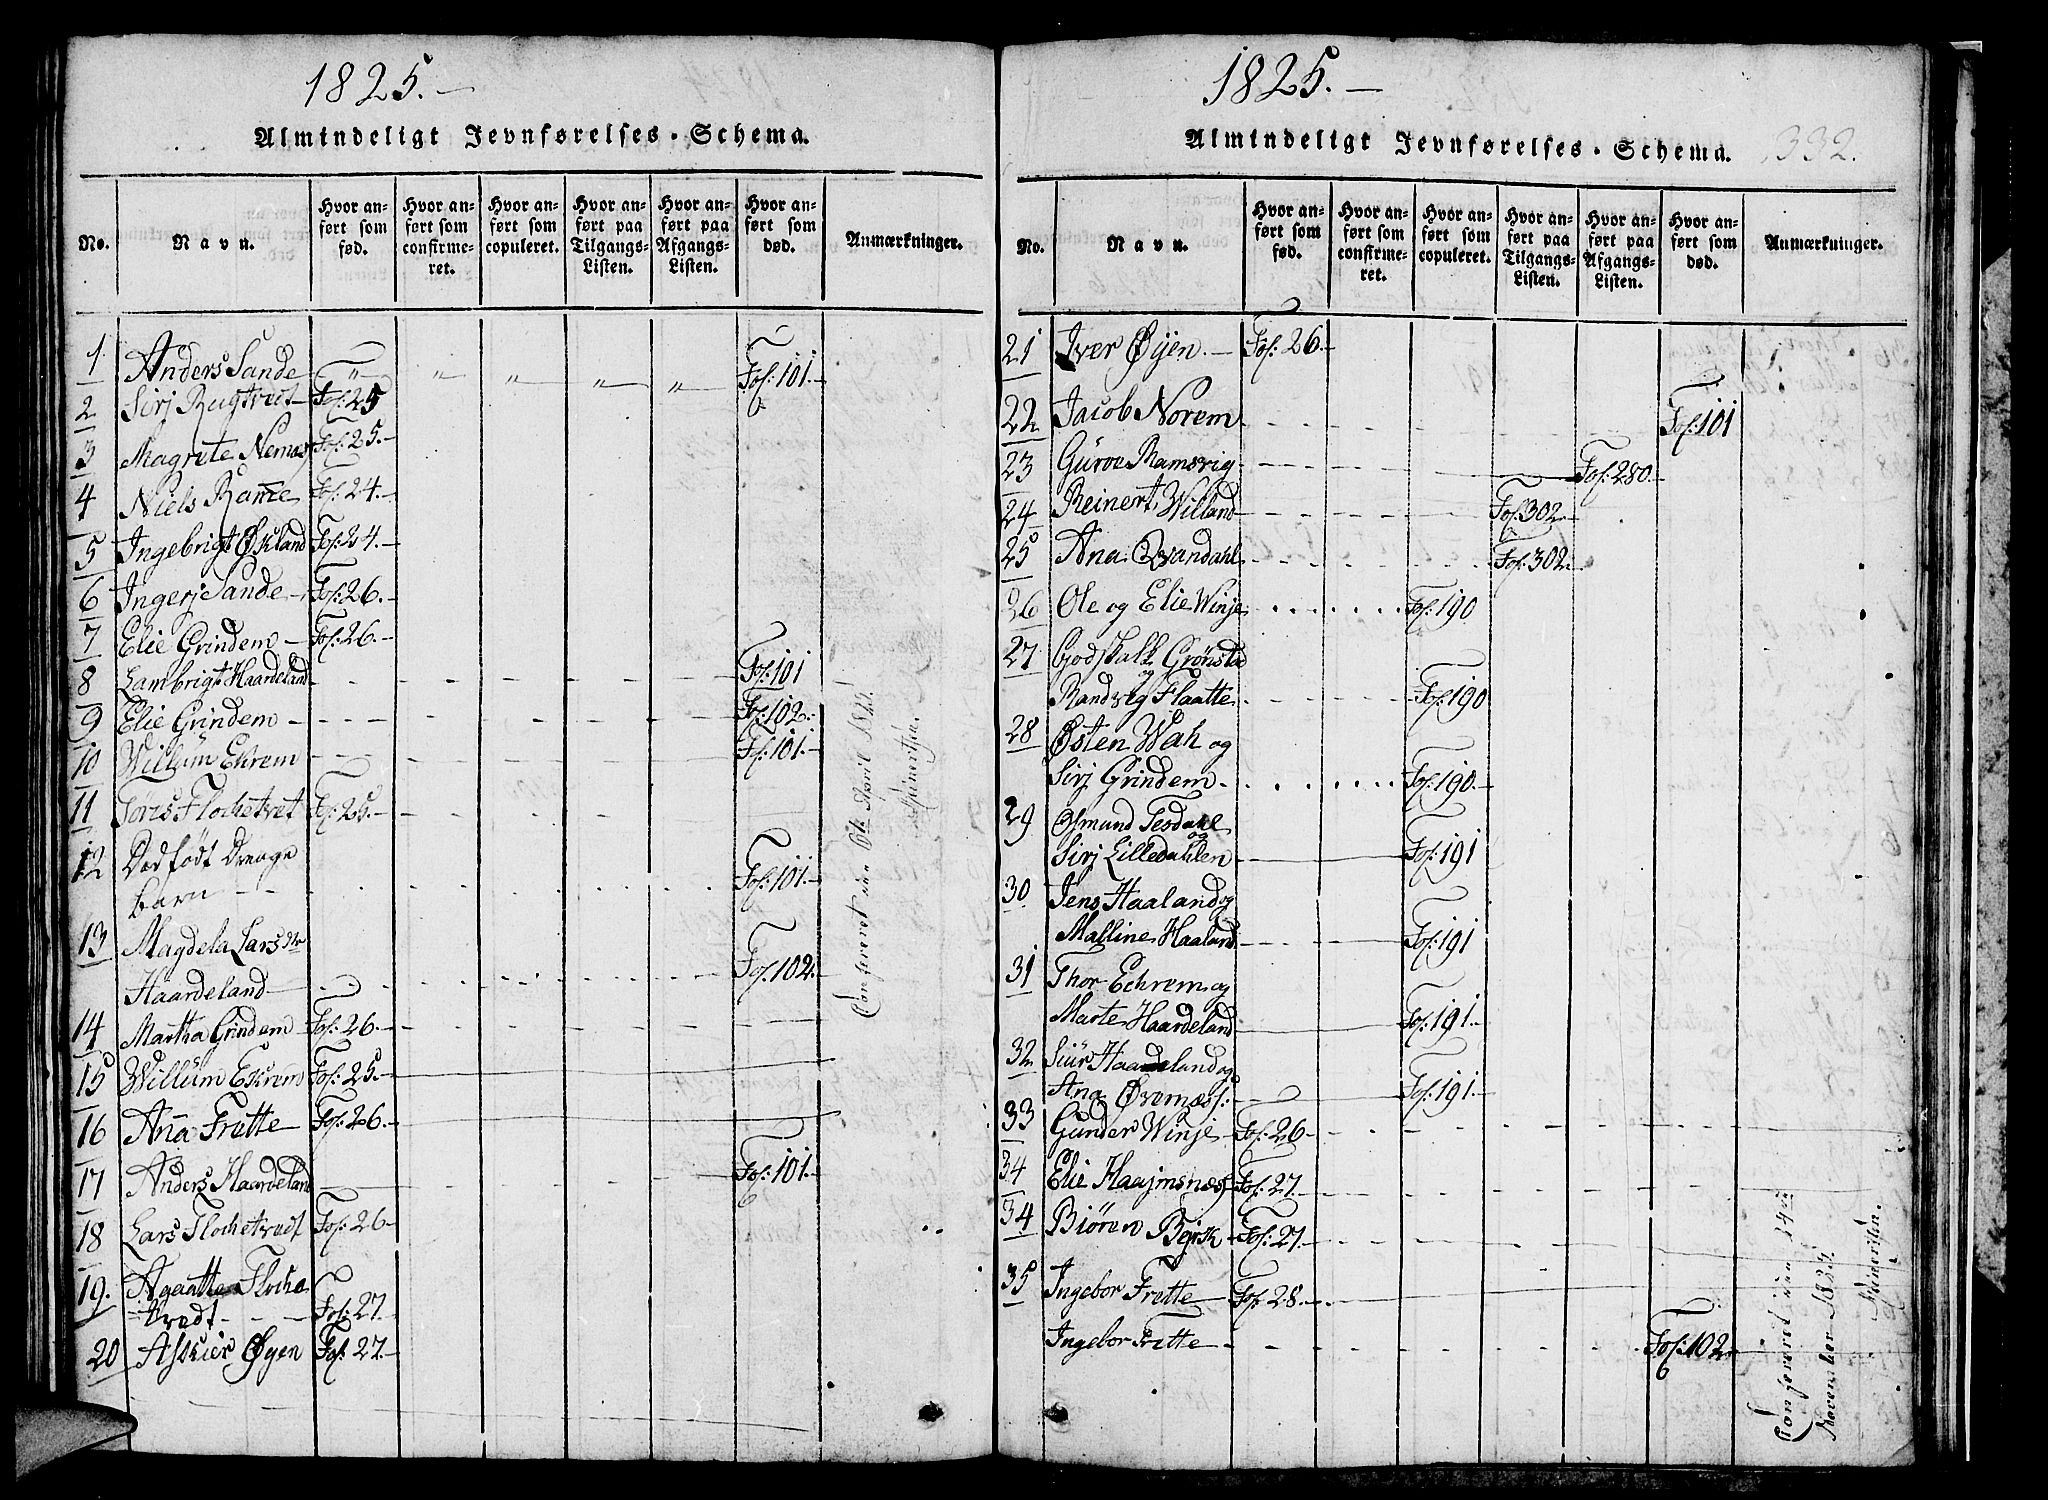 1825.
Almindeligt Jevnførelses-Schema.
No.
Navn.
Hvor anført som fød.
Hvor anført som confirmeret.
Hvor anført som copuleret.
Hvor anført paa Tilgangs-Listen.
Hvor anført paa Afgangs-Listen.
Hvor anført som død.
Anmærkninger.
1 Anders Sande " " " " " Fol: 101.
2 Sirj Rugtvedt Fol: 25
3 Magrete Nemes Fol: 25.
4 Niels Rame Fol: 24.
5 Ingebrigt Økland Fol: 24.
6 Ingerj Sande Fol: 26.
7 Elie Grindem Fol: 26.
8 Lambrigt Haardeland Fol: 101
9 Elie Grindem Fol: 102.
10 Willum Ekrem Fol: 101.
11 Flochetvet Fol: 25.
12 Dødfødt Drenge
barn Fol: 101.
13 Magdela Larsdtr
Haardeland Fol: 102.
14 Martha Grindem Fol: 26.
15 Willum Ekrem Fol: 25.
16 Aña Frette Fol: 26.
17 Anders Haardeland Fol: 101.
18 Lars Flochetvedt Fol: 26
19. Agaatte Floche
tvedt Fol: 27.
20 Askier Øyen Fol: 27.
Confereret den 6te April
1825.
Almindeligt Jevnførelses-Schema. 332.
No.
Navn.
Hvor anført som fød.
Hvor anført som confirmeret.
Hvor anført som copuleret.
Hvor anført paa Tilgangs-Listen.
Hvor anført paa Afgangs-Listen.
Hvor anført som død.
Anmærkninger.
21 Iver Øyen. Fol: 26.
22 Jacob Norem Fol: 101
23 Guroe Ramsvig Fol: 280.
24 Reinert Willand Fol: 302.
25 Ana Qvandahl Fol: 302.
26 Ole og Elie Winje Fol: 190
27 Godskalk Grønstad
og
Randveg Flaatte Fol: 190
28 Østen Wah og
Sirj Grindem Fol: 190.
29 Osmund Tesdal
og
Sirj Lilledahlen Fol: 191
30 Jens Haaland og
Malline Haaland Fol: 191
31 Thor Echrem og
Marte Haardeland Fol: 191.
32 Siur Haardeland og
Ana Øvernæss: Fol: 191.
33 Gunder Winje Fol: 26
34 Elie Haajmsnæss Fol: 27.
34 Biøren Bjerk Fol: 27.
35 Ingebor Frette Fol: 28.
Ingebor Frette Fol: 102.
Confereret den 14de
November 1825.